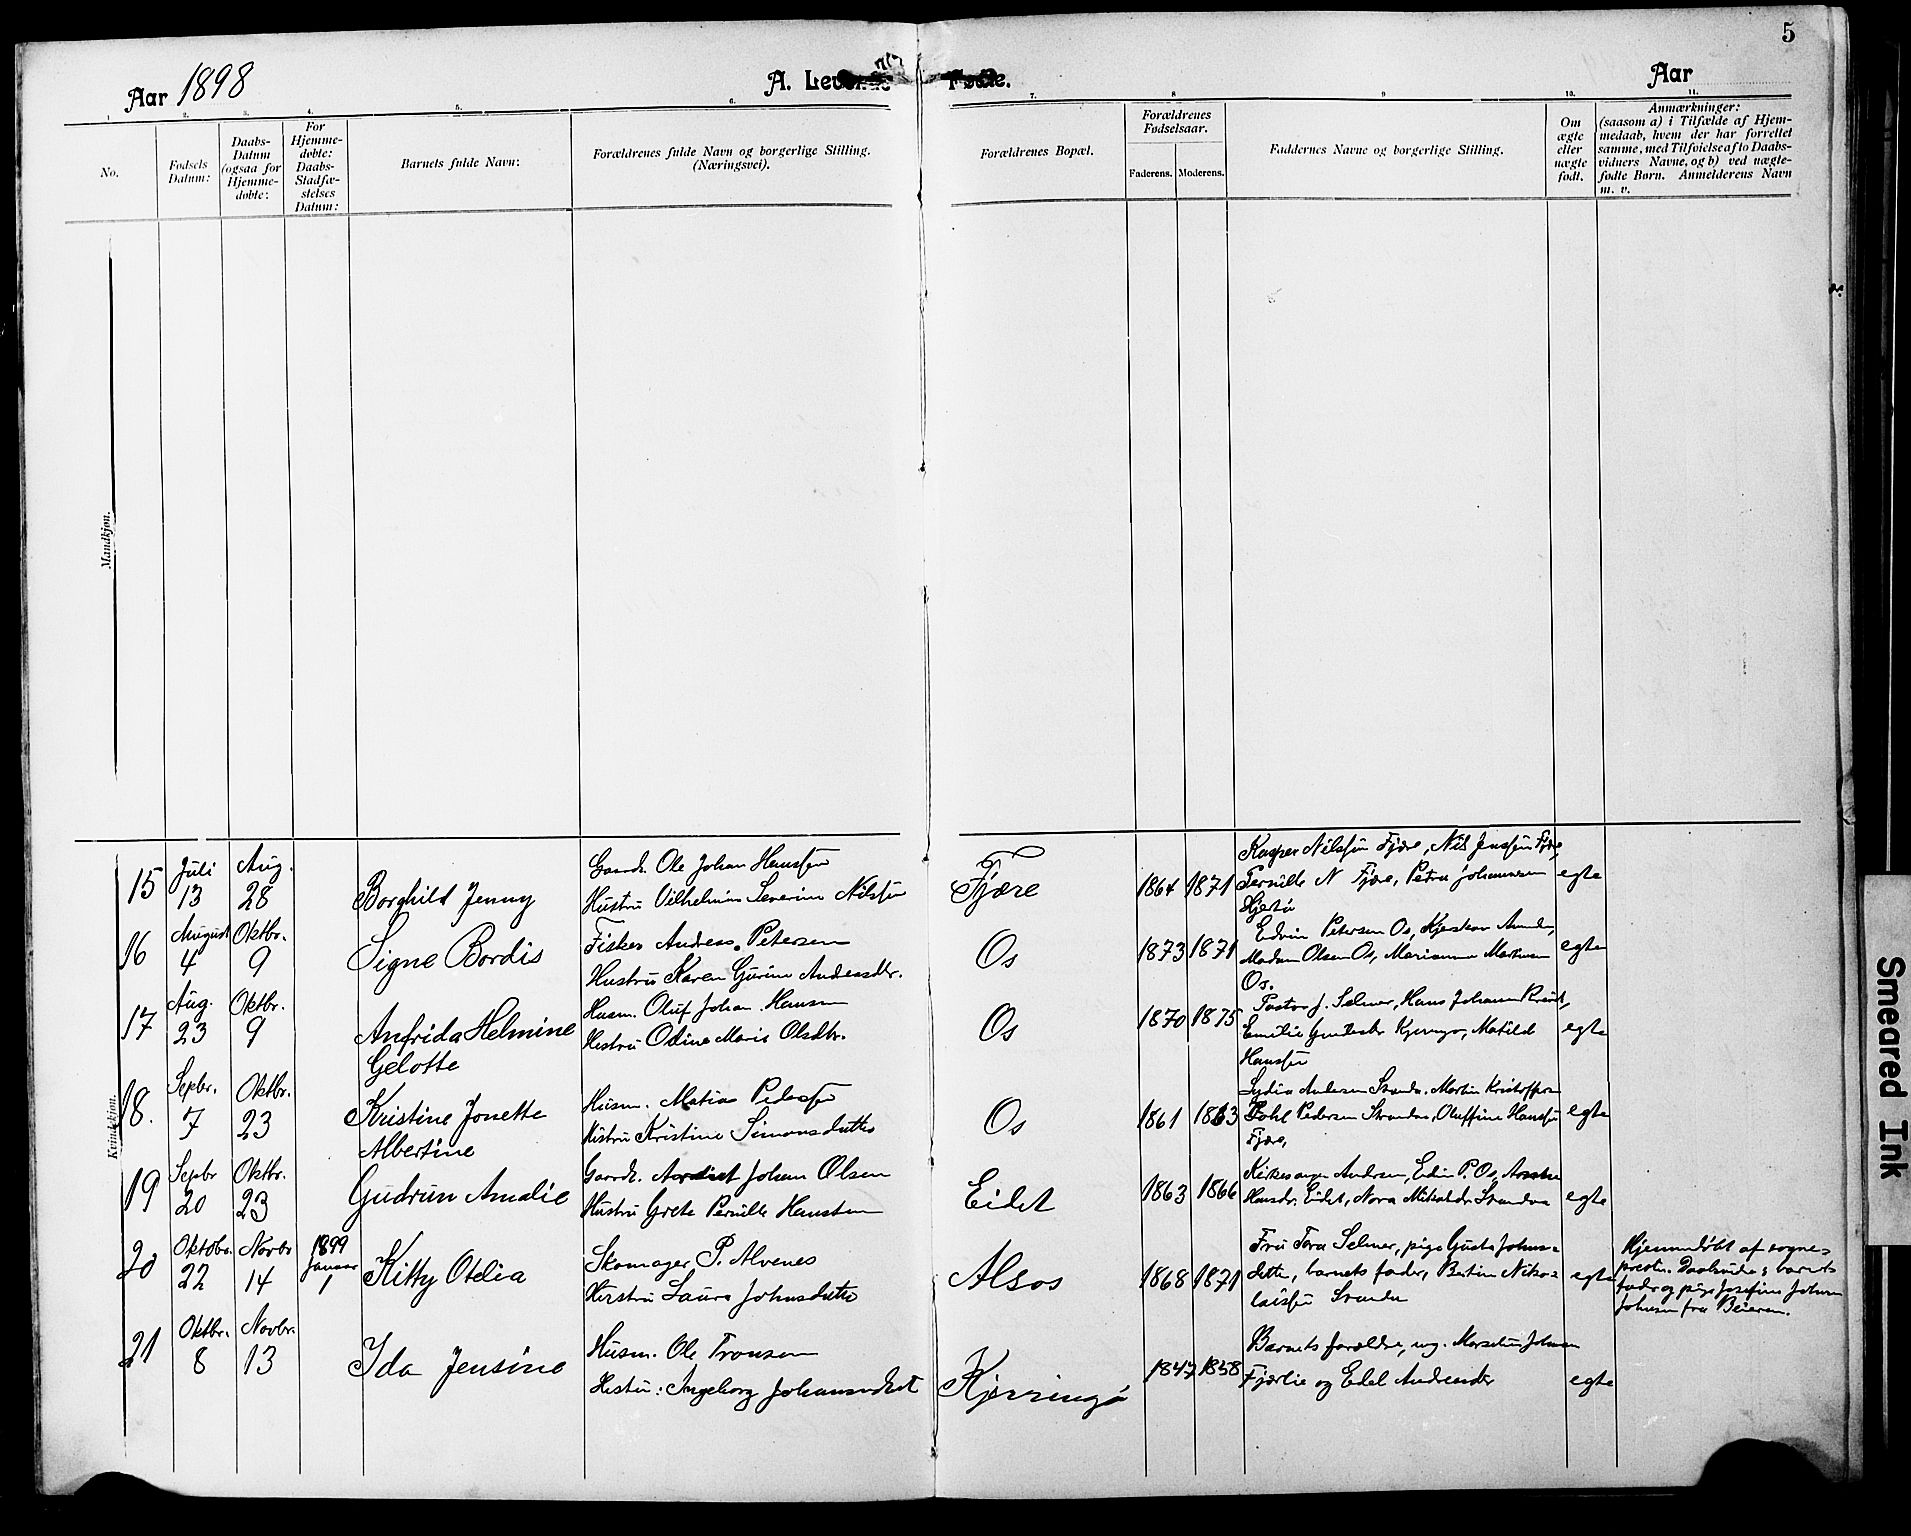 5
Aar 1898
A. Levende Fødte.
Aar
1. 2. 3. 4. 5. 6. 7. 8 9 10. 11.
No.
Fødsels Datum:
Daabs-Datum (ogsaa for Hjemme-døbte:
For Hjemme-døbte: Daabs-Stadfæ-stelses Datum:
Barnets fulde Navn:
Forældrenes fulde Navn og borgerlige Stilling.
(Næringsvei).
Forældrenes Bopæl.
Forældrenes Fødselsaar.
Faderens. Moderens.
Faddernes Navne og borgerlige Stilling.
Om ægte eller uægte født.
Anmærkninger:
(saasom a) i Tilfælde af Hjem-
medaab, hvem der har forrettet
samme, med Tilføielse af to Daabs-
vidners Navne, og b) ved uægte-
fødte Børn. Anmelderens Navn
m. v.
Mandkjøn.
Kvindekjøn.
15 Juli 13 Aug. 28 Borghild Jenny
Gaardb. Ole Johan Hanssen
Hustru Vilhelmine Severine Nilssen
Fjære 1864 1871
Kasper Nilssen Fjære, Nils Jenssen Fjære,
Pernille N Fjære, Petra Johannesen
Hjertø
egte
16 August 4 Oktbr. 9 Signe Bordis
Fisker Andreas Petersen
Hustru Karen Gurine Andreasdtr.
Os 1873 1871
Edvin Petersen Os,
Madam Olsen Os, Marianne
Os.
egte
17 Aug. 23 Oktbr. 9 Anfrida Helmine
Gelotte
Husm. Oluf Johan Hansen
Hustru Odine Marie Olsdtr.
Os 1870 1875
Pastor J. Selmer, Hans Johan
Emilie Kjerringø, Matilde
Hanssen
egte
18. Sepbr. 7 Oktbr. 23 Kristine Jonette
Albertine
Husm. Matias Pedersen
Hustru Kristine Simonsdatter
Os 1861 1863
Lydia Andersen Strandn. Martin Kristoffersen
Pedersen Strandn, Oluffine Hanssen
Fjære,
egte
19 Sepbr 20 Oktbr. 23 Gudrun Amalie
Gaardb. Johan Olsen
Hustru Grete Pernille Hansten
Eidet 1863 1866
Kirkesanger Andersen, Edvin P. Os,
Hansdr. Eidet, Nora
egte
20 Oktobr. 22 Novbr 14 1899 Januar 1 Kitty Otelia
Skomager P. Alvenes
Hustru Laura Johnsdatter
Alsos 1868 1871
Fru Tora Selmer, pige Gusta Johns-
datter, barnets fader, Bertin Niko-
laissen Strandn
egte
Hjemmedøbt af sogne-
presten. Daabsvidner barnets
fader og pige Josefine Johan
Johnsen fra Beieren.
21 Oktbr. 8 Novbr. 13 Ida Jensine
Husm. Ole Tronsen
Hustru: Ingeborg Johannesdtr
Kjerringø 1847 1858
Barnets forældre, ug.
Fjærlie og Edel Andreasdtr
egte
Smeared Ink